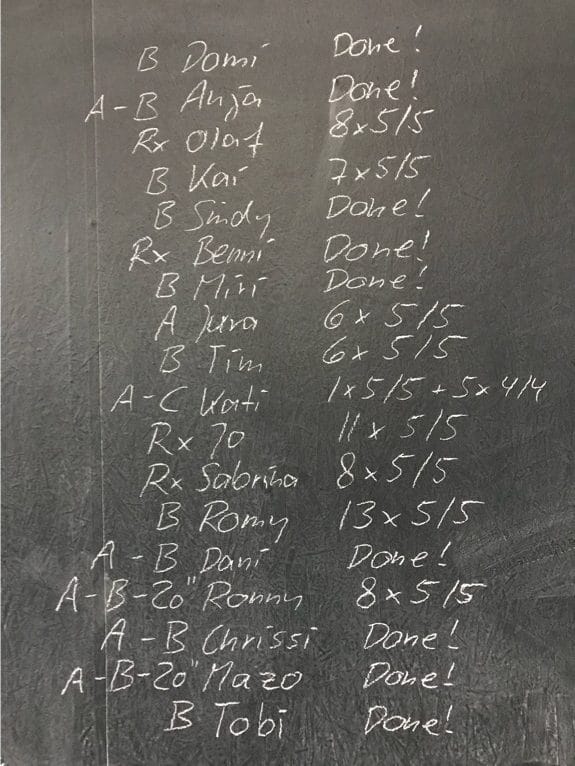 B Domi Done!
A-B Anja Done!
Rx Olaf 8x5/5
B Kai 7x5/5
B Sindy Done!
Rx Benni Done!
B Miri Done!
A Jura 6x 5/5
B Tim 6x 5/5
A-C Kati 1x5/5 + 5x4/4
Rx Jo 11x 5/5
Rx Sabrina 8x5/5
B Romy 13x5/5
A-B Dani Done!
A-B-20" Ronny 8x5/5
A-B Chrissi Done!
A-B-20" Mazo Done!
B Tobi Done!